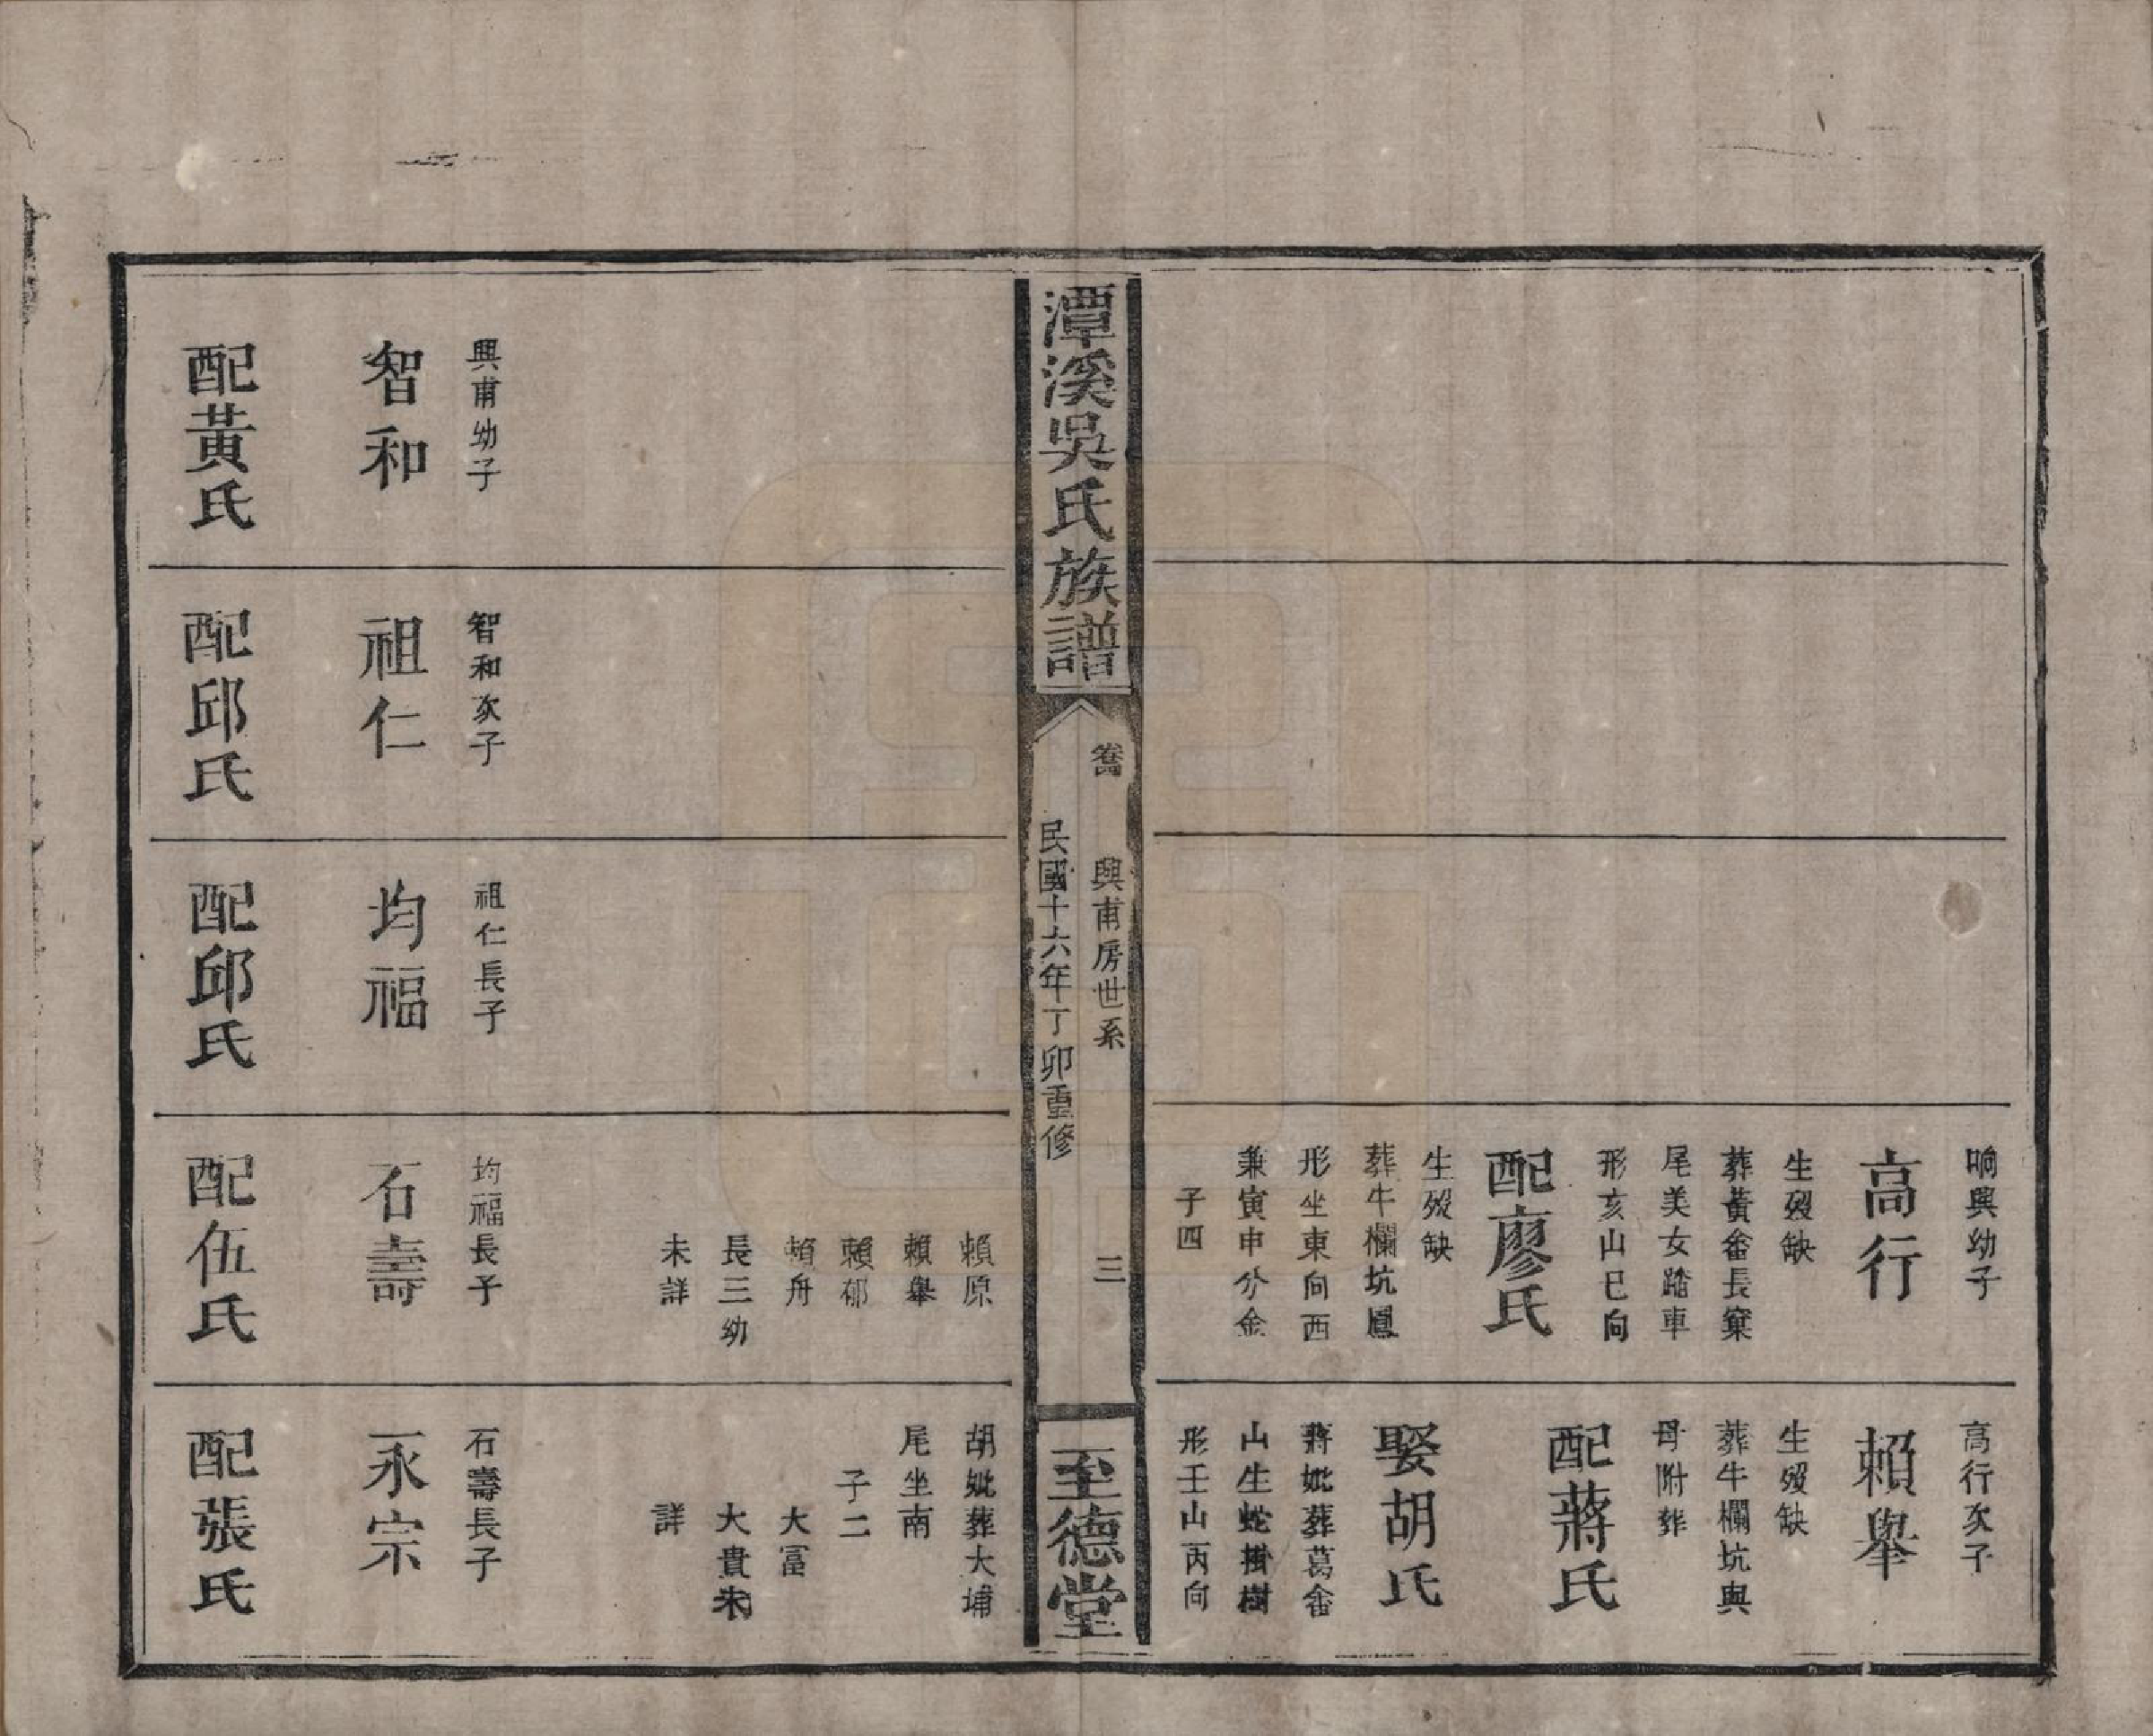 响興幼子
高行
生歿缺
葬黃畬長窠
尾美女踏車
形亥山巳向
配廖氏
生歿缺
葬牛欄坑鳳
形坐東向西
兼寅申分金
子四
高行次子
賴舉
生歿缺
葬牛欄坑與
母附葬
配蔣氏
娶胡氏
蔣妣葬葛畬
山生蛇掛樹
形壬山丙向
潭溪吳氏族譜
興甫房世系
三
民國十六年丁卯重修
至德堂
賴原
賴舉
賴郁
賴舟
長三幼
未詳
胡妣葬大埔
尾坐南
子二
大富
大貴未
詳
興甫幼子
智和
配黃氏
智和次子
祖仁
配邱氏
祖仁長子
均福
配邱氏
均福長子
石壽
配伍氏
石壽長子
永宗
配張氏